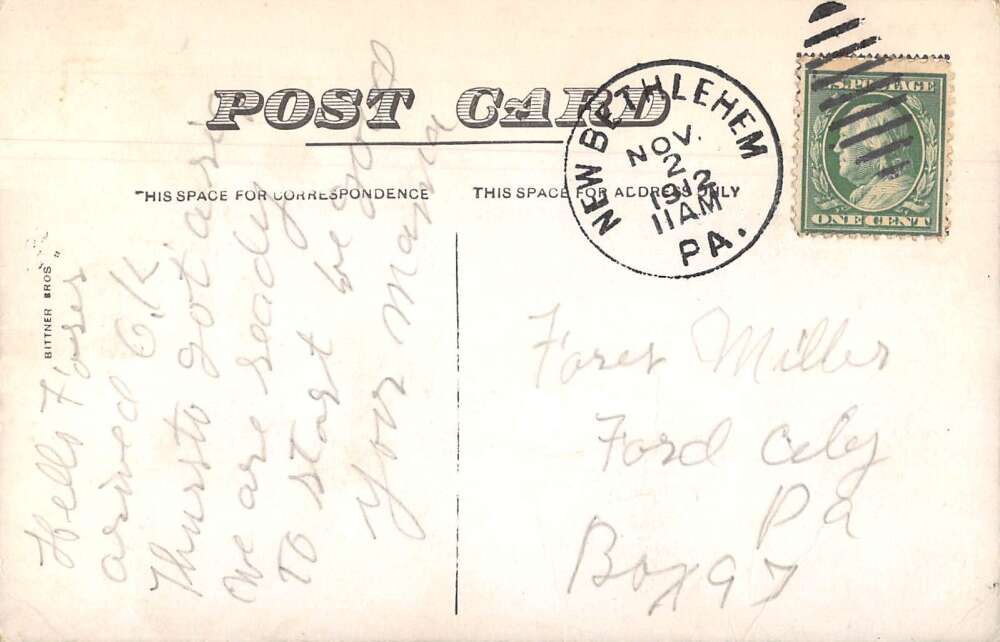 POST CARD
THIS SPACE FOR CORRESPONDENCE
THIS SPACE FOR ADDRESS ONLY
NEW BETHLEHEM
PA.
NOV.
2
1912
11 AM
U.S. POSTAGE
ONE CENT
BITTNER BROS
Hello Fores
arived O.K
got
we are ready
To start be good
Your mama
Fores Miller
Ford City
Pa
Box 97